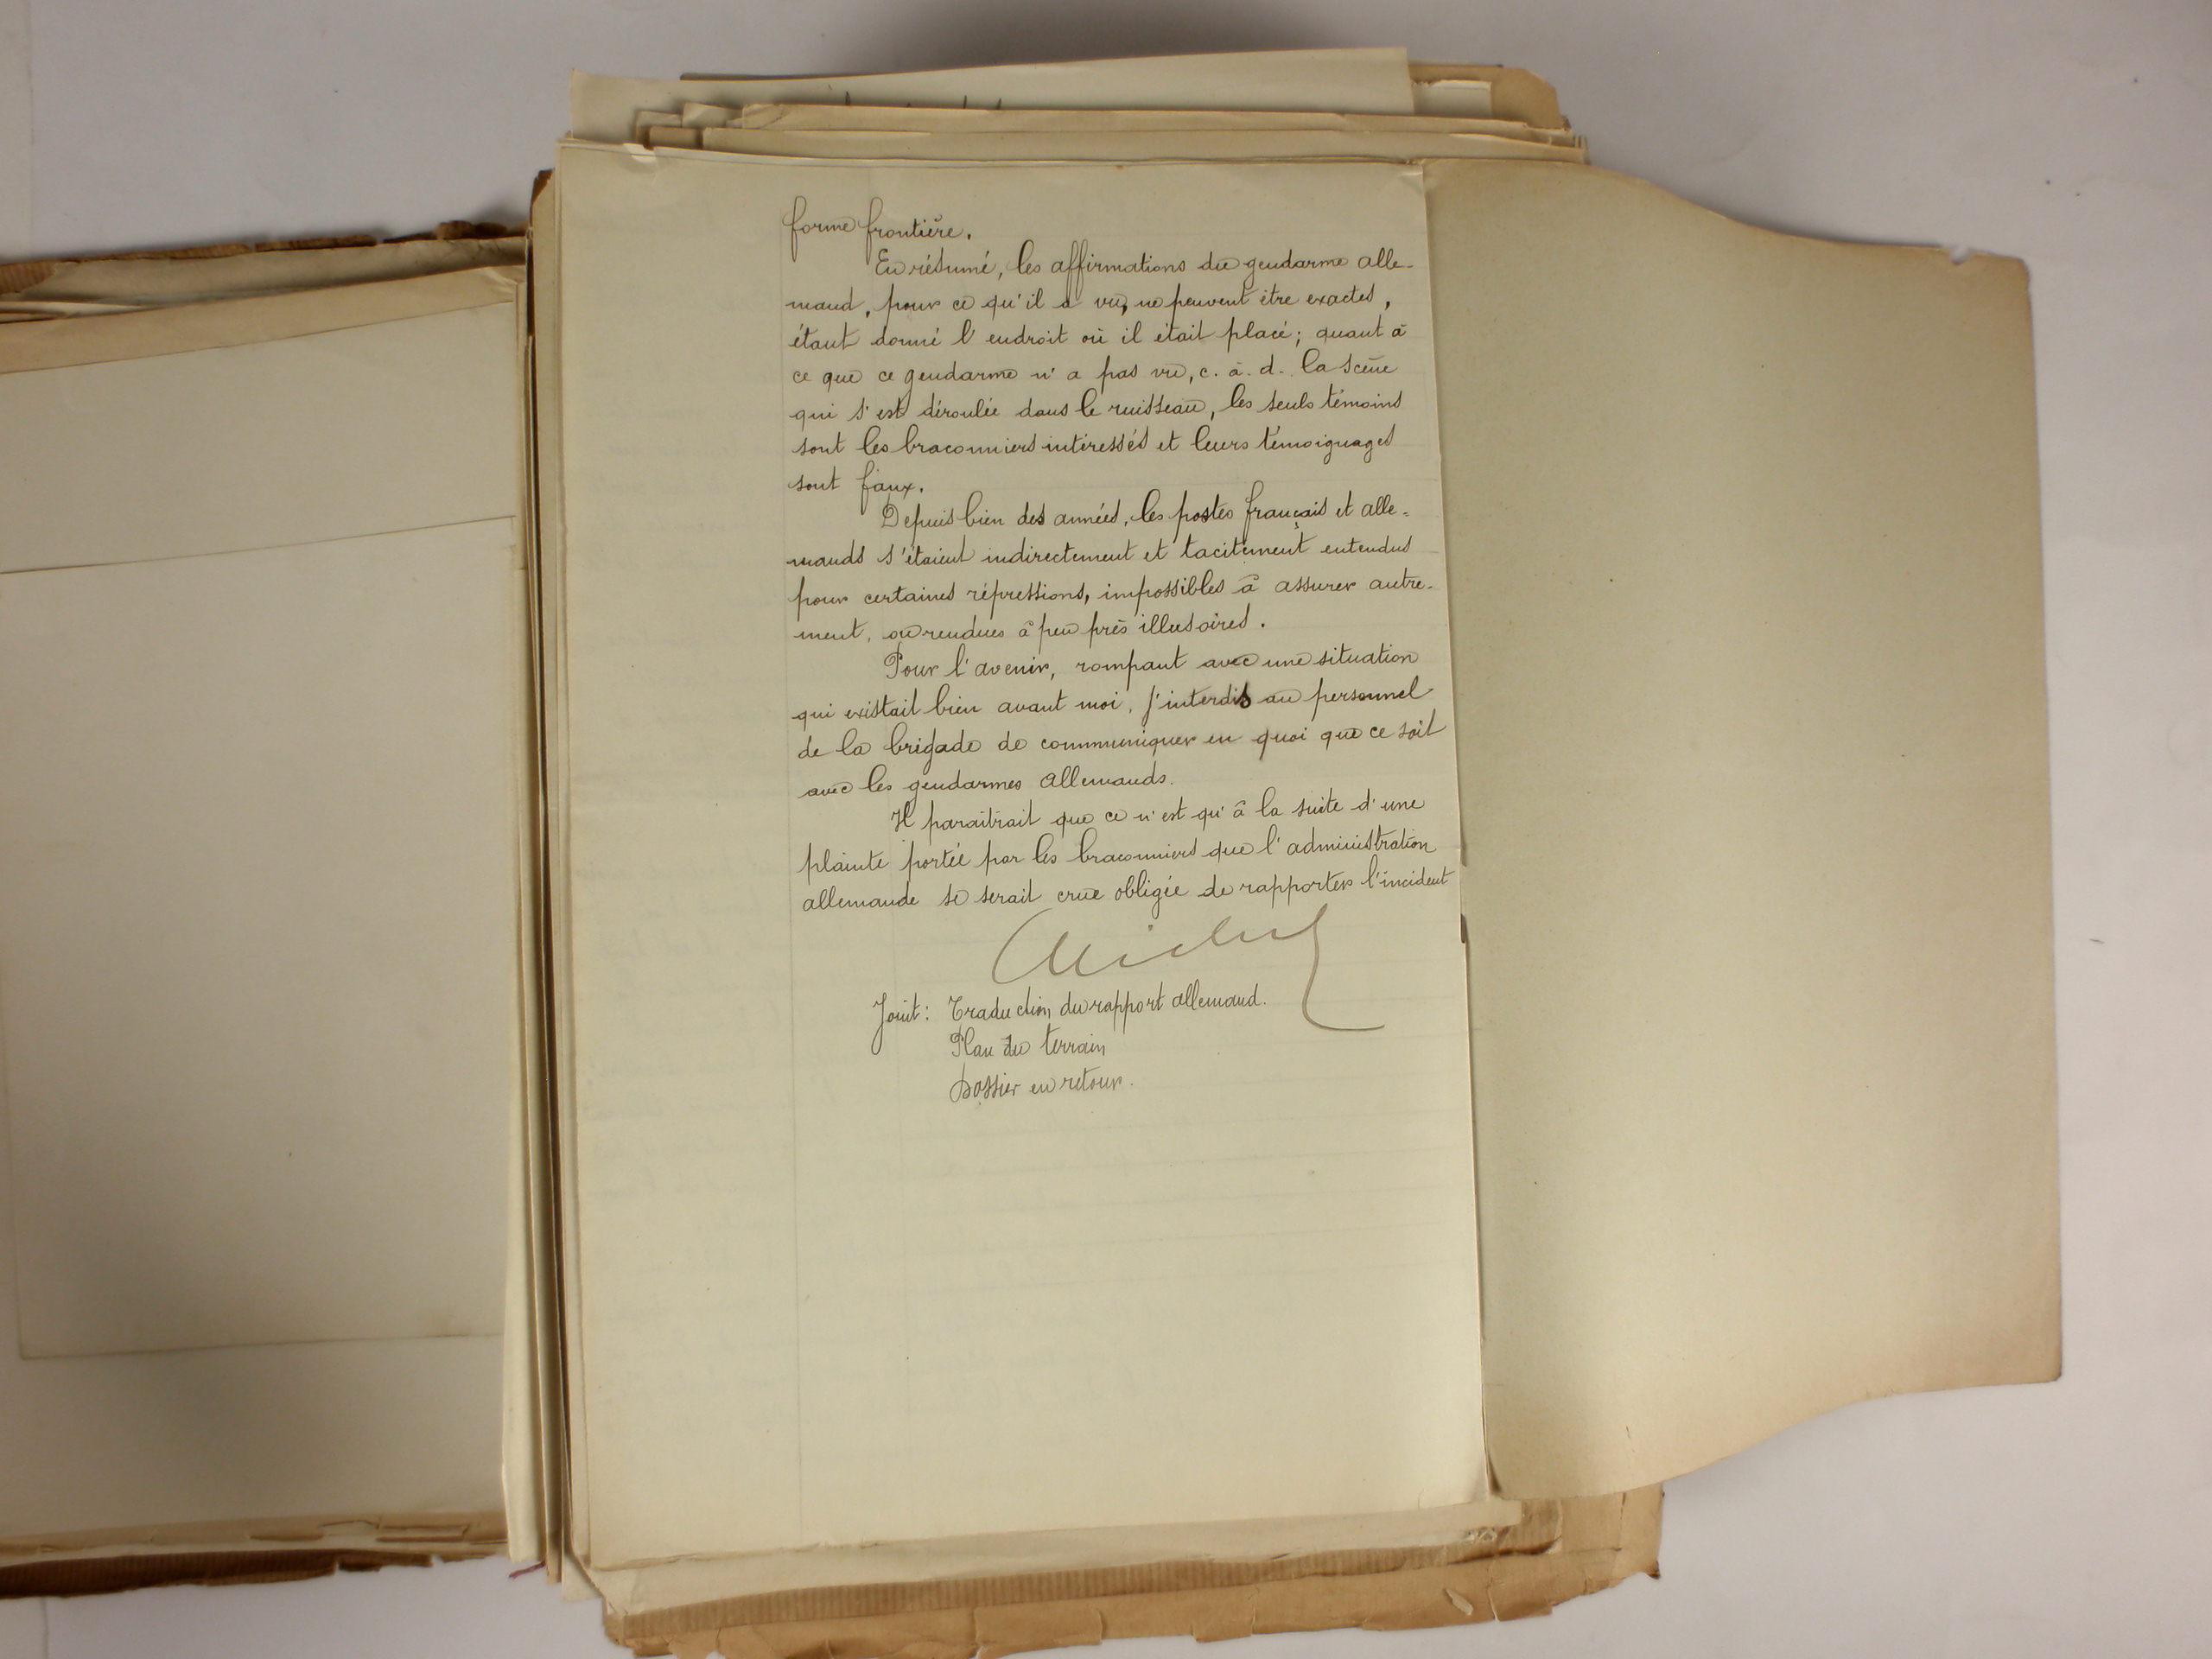 forme frontière.
En résumé, les affirmations du gendarme alle-
mand, pour ce qu'il a vu, ne peuvent être exactes,
étant donné l'endroit où il était placé; quant à
ce que ce gendarme n'a pas vu, c. à. d. la scène
qui s'est déroulée dans le ruisseau, les seuls témoins
sont les braconniers intéressés et leurs témoignages
sont faux.
Depuis bien des années, les postes français et alle-
mands s'étaient indirectement et tacitement entendus
pour certaines répressions, impossibles à assurer autre-
ment, ou rendues à peu près illusoires.
Pour l'avenir, rompant avec une situation
qui existait bien avant moi, j'interdis au personnel
de la brigade de communiquer en quoi que ce soit
avec les gendarmes allemands.
Il paraîtrait que ce n'est qu'à la suite d'une
plainte portée par les braconniers que l'administration
allemande se serait crue obligée de rapporter l'incident
Joint: Traduction du rapport allemand.
Plan du terrain
Dossier en retour.